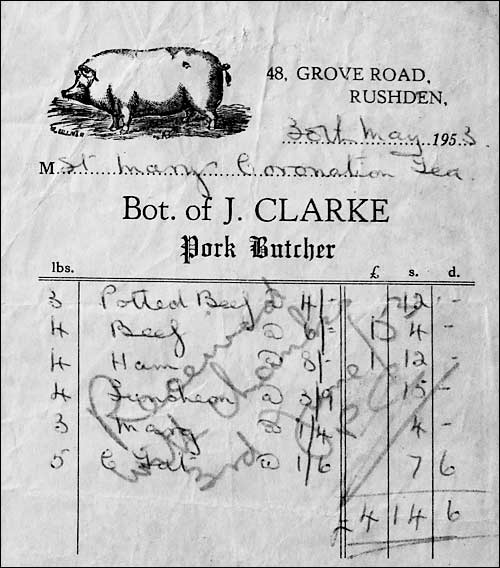 48, GROVE ROAD,
RUSHDEN,
30th May 1953.
M St Marys Coronation Tea
Bot. of J. CLARKE
Pork Butcher
lbs. £ s. d.
3 Potted Beef @ 4/- 12 -
4 Beef @ 6/- 1 4 -
4 Ham @ 8/- 1 12 -
4 Luncheon @ 3/9 15 -
3 Marg @ 1/4 4 -
5 C Fat @ 1/6 7 6
£4 14 6
Received
3rd June